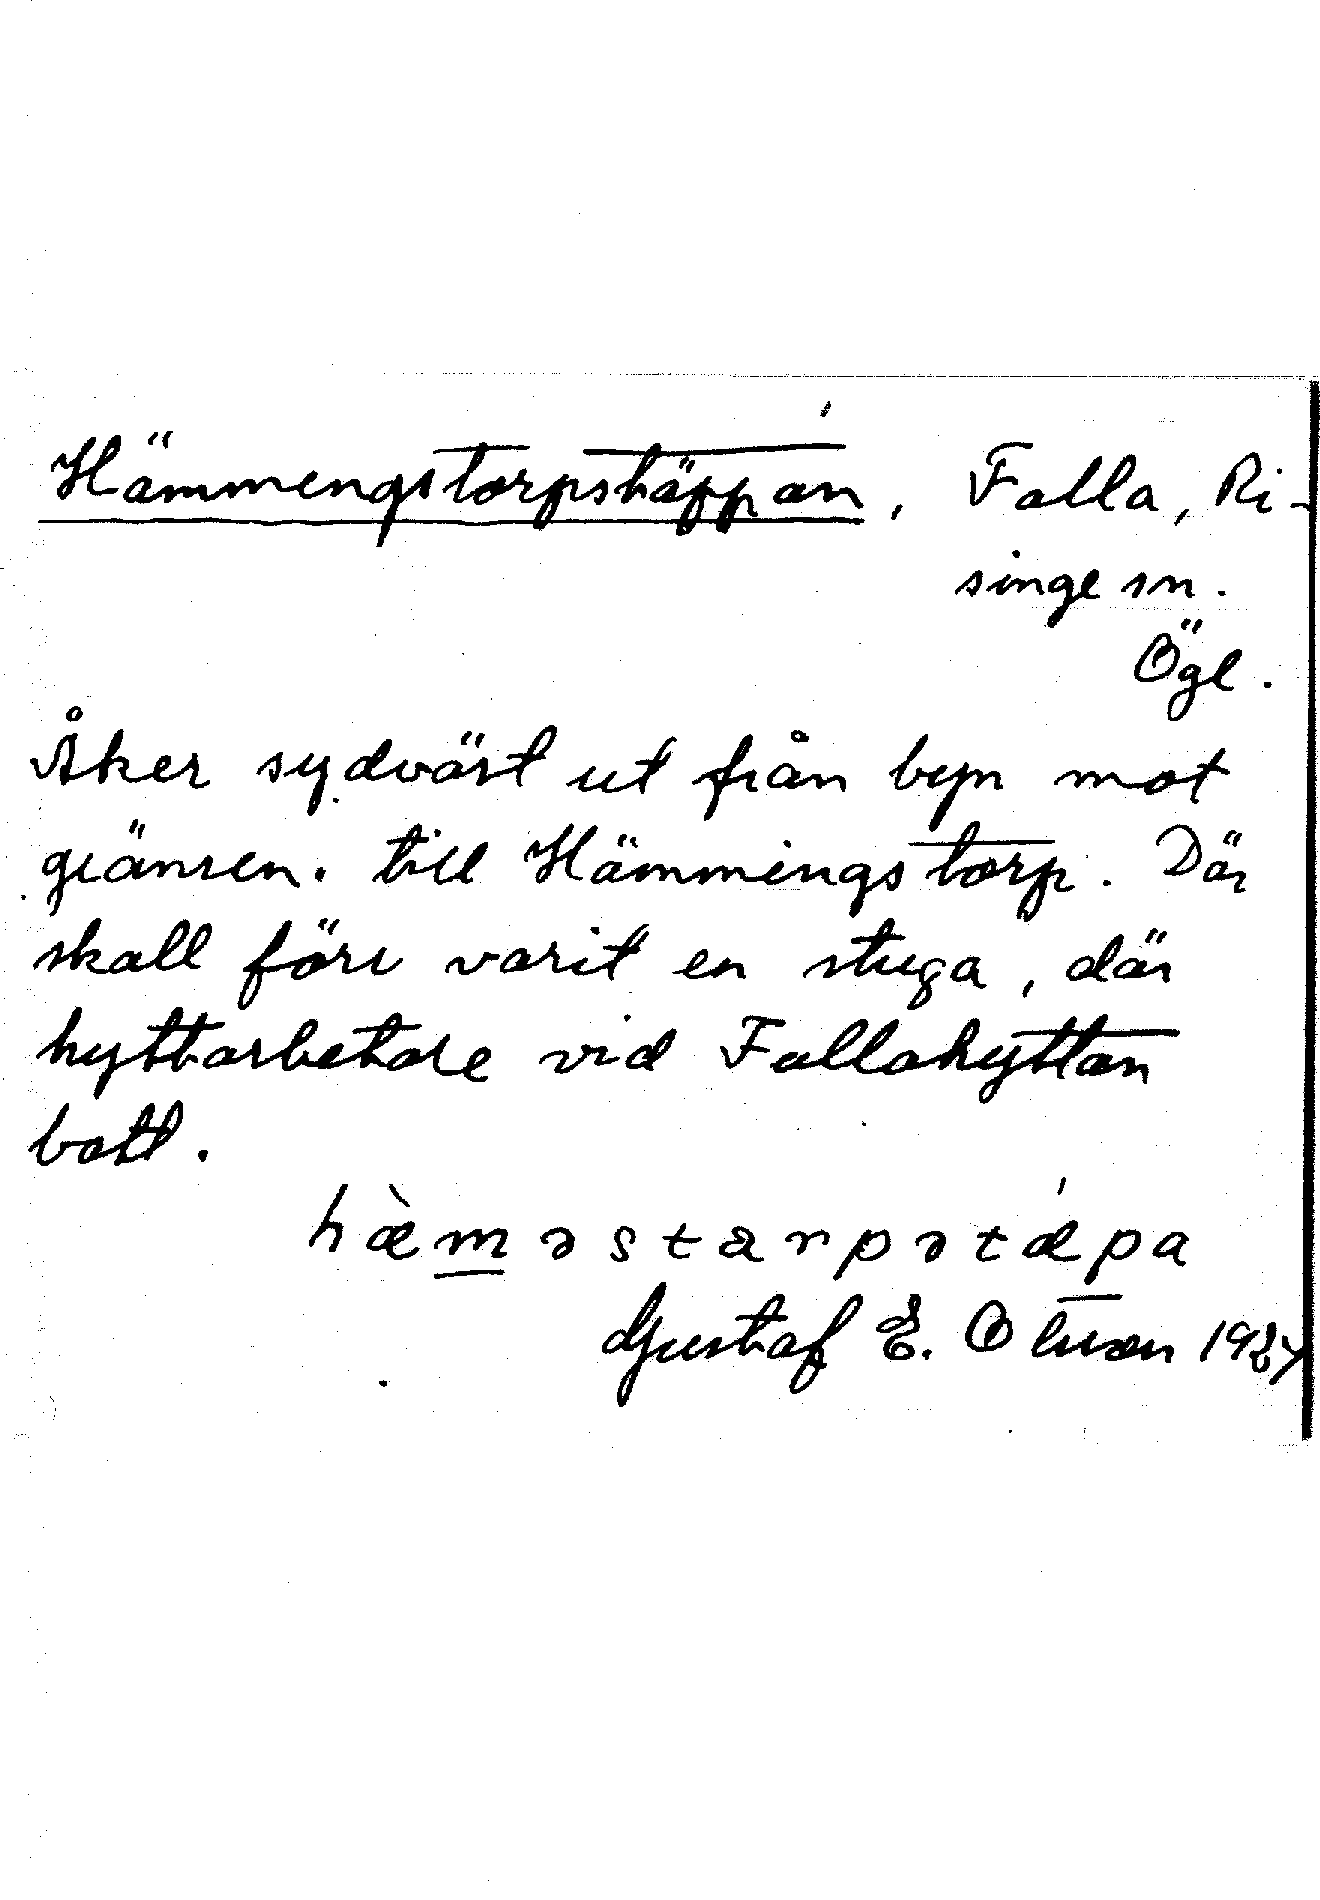 Hämmengstorpstäppan, Falla, Ri-
singe sn.
Ögl.
Åker sydväst ut från byn mot
gränsen. till Hämmingstorp. Där
skall förr varit en stuga, där
hyttarbetare vid Fallahyttan
bott.
hæ̀məstarpətǽpa
Gustaf E. Olsson 1927